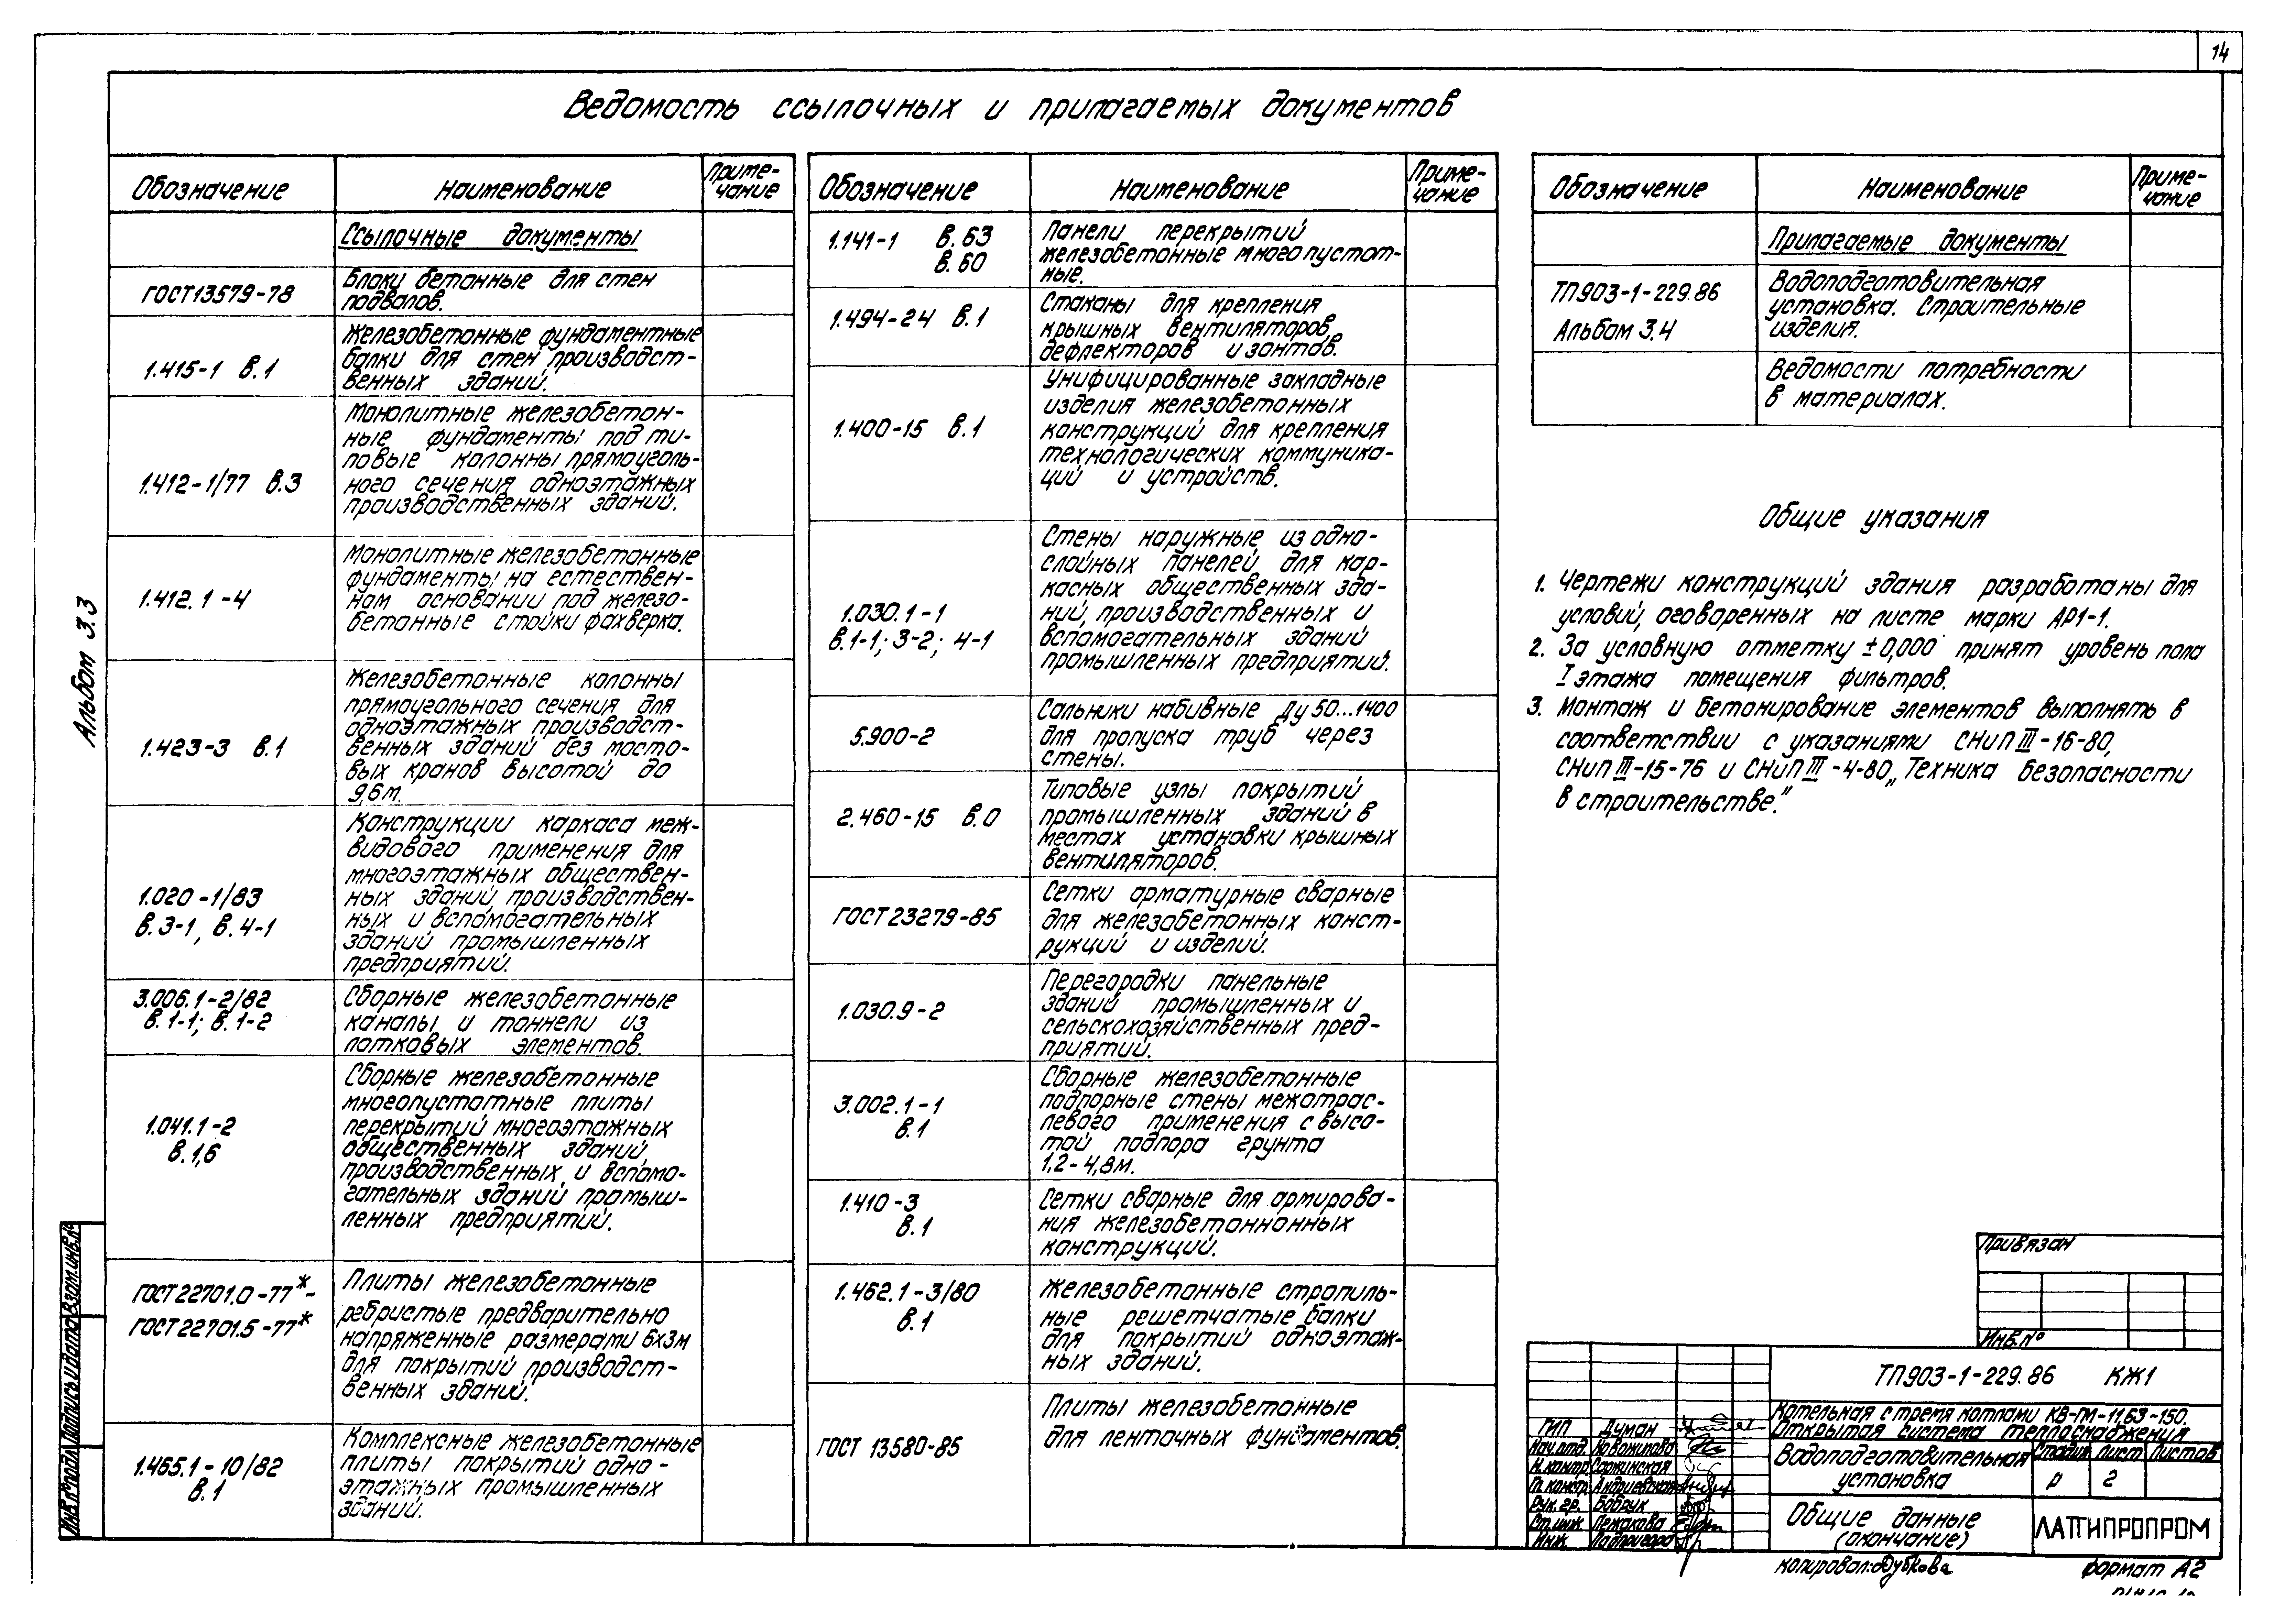 14
Ведомость ссылочных и прилагаемых документов
Обозначение
Наименование
Приме-
чание
Ссылочные документы
ГОСТ 13579-78
Блоки бетонные для стен
подвалов.
1.415-1 в.1
Железобетонные фундаментные
балки для стен производст-
венных зданий.
1.412-1/77 в.3
Монолитные железобетон-
ные фундаменты под ти-
повые колонны прямоуголь-
ного сечения одноэтажных
производственных зданий.
1.412.1-4
Монолитные железобетонные
фундаменты на естествен-
ном основании под железо-
бетонные стойки фахверка.
1.423-3 в.1
Железобетонные колонны
прямоугольного сечения для
одноэтажных производст-
венных зданий без мосто-
вых кранов высотой до
9,6 м.
1.020-1/83
в.3-1, в.4-1
Конструкции каркаса меж-
видового применения для
многоэтажных обществен-
ных зданий, производствен-
ных и вспомогательных
зданий промышленных
предприятий.
3.006.1-2/82
в.1-1; в.1-2
Сборные железобетонные
каналы и тоннели из
лотковых элементов.
1.041.1-2
в.1,6
Сборные железобетонные
многопустотные плиты
перекрытий многоэтажных
общественных зданий,
производственных и вспомо-
гательных зданий промыш-
ленных предприятий.
ГОСТ 22701.0-77*-
ГОСТ 22701.5-77*
Плиты железобетонные
ребристые предварительно
напряженные размерами 6х3м
для покрытий производст-
венных зданий.
1.465.1-10/82
в.1
Комплексные железобетонные
плиты покрытий одно-
этажных промышленных
зданий.
Обозначение
Наименование
Приме-
чание
1.141-1 в.63
в.60
Панели перекрытий
железобетонные многопустот-
ные.
1.494-24 в.1
Стаканы для крепления
крышных вентиляторов,
дефлекторов и зонтов.
1.400-15 в.1
Унифицированные закладные
изделия железобетонных
конструкций для крепления
технологических коммуника-
ций и устройств.
1.030.1-1
в.1-1; 3-2; 4-1
Стены наружные из одно-
слойных панелей для кар-
касных общественных зда-
ний, производственных и
вспомогательных зданий
промышленных предприятий.
5.900-2
Сальники набивные Ду 50...1400
для пропуска труб через
стены.
2.460-15 в.0
Типовые узлы покрытий
промышленных зданий в
местах установки крышных
вентиляторов.
ГОСТ 23279-85
Сетки арматурные сварные
для железобетонных конст-
рукций и изделий.
1.030.9-2
Перегородки панельные
зданий промышленных и
сельскохозяйственных пред-
приятий.
3.002.1-1
в.1
Сборные железобетонные
подпорные стены межотрас-
левого применения с высо-
той подпора грунта
1,2-4,8м.
1.410-3
в.1
Сетки сварные для армирова-
ния железобетоннонных
конструкций.
1.462.1-3/80
в.1
Железобетонные стропиль-
ные решетчатые балки
для покрытий одноэтаж-
ных зданий.
ГОСТ 13580-85
Плиты железобетонные
для ленточных фундаментов.
Обозначение
Наименование
Приме-
чание
Прилагаемые документы
ТП903-1-229.86
Альбом 3.4
Водоподготовительная
установка. Строительные
изделия.
Ведомости потребности
в материалах.
Общие указания
1. Чертежи конструкций здания разработаны для
условий, оговоренных на листе марки АР1-1.
2. За условную отметку ±0,000 принят уровень пола
I этажа помещения фильтров.
3. Монтаж и бетонирование элементов выполнять в
соответствии с указаниями СНиП III-16-80,
СНиП III-15-76 и СНиП III-4-80 „Техника безопасности
в строительстве."
Альбом 3.3
Взам.инв.№
Подпись и дата
Инв.№ подл.
Привязан
Инв.№
ТП903-1-229.86 КЖ1
Котельная с тремя котлами КВ-ГМ-11,63-150.
Открытая система теплоснабжения
Водоподготовительная
установка
Стадия Лист Листов
р 2
Общие данные
(окончание)
ЛАТГИПРОПРОМ
ГИП Думан
Нач.отд. Новожилова
Н.контр. Соржинская
Гл.констр. Андриевская
Рук.гр. Бобрук
Ст.инж. Лежакова
Инж. Подпригора
Копировал: Дубкова
формат А2